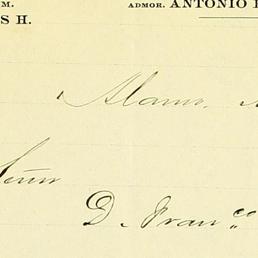 M.
ADMOR. ANTONIO
S H.
Alamo,
Señor
D. Franco